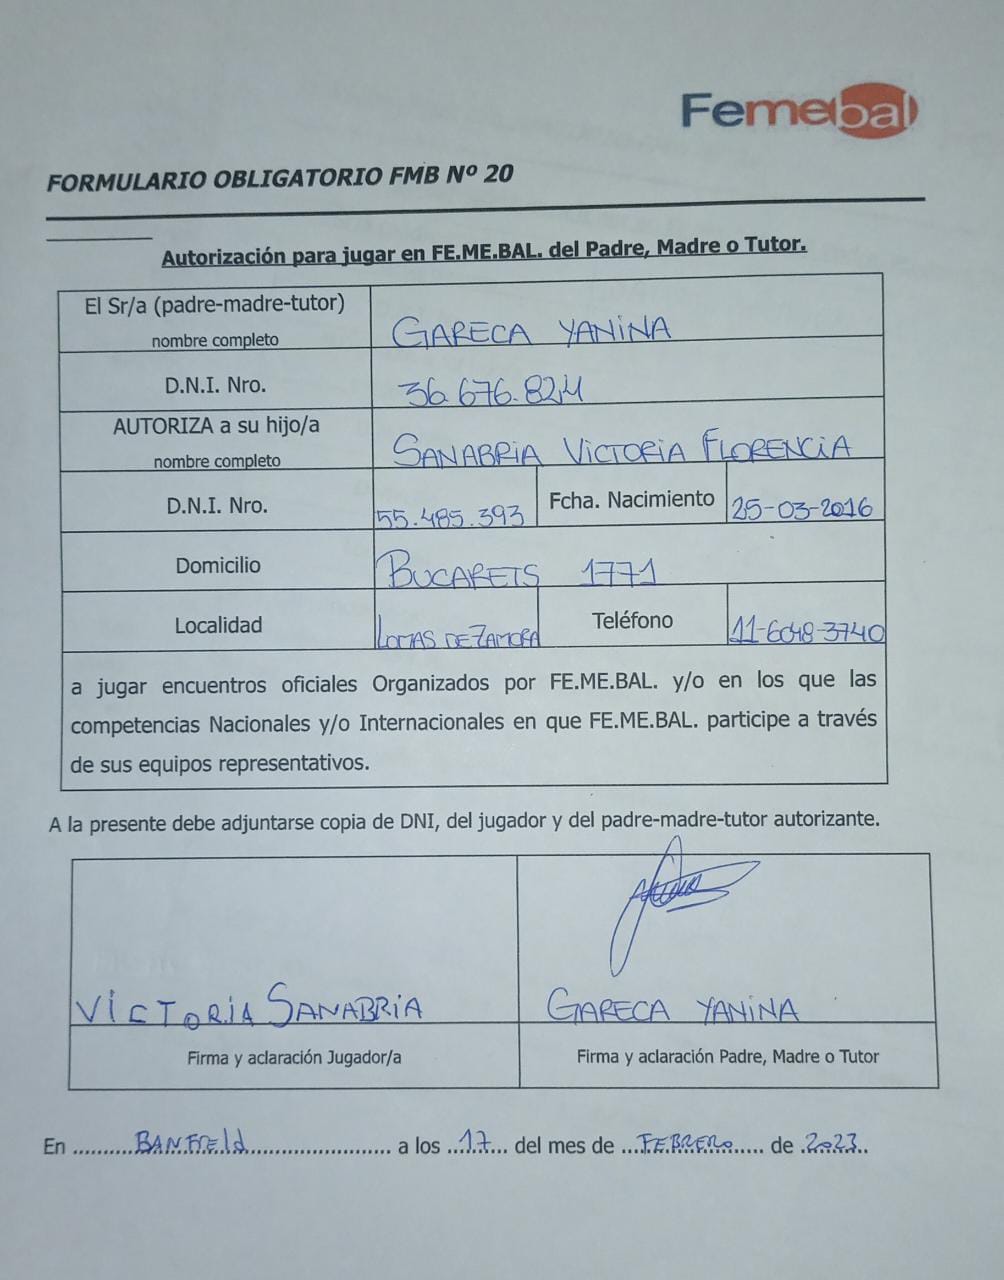 Femebal
FORMULARIO OBLIGATORIO FMB Nº 20
Autorización para jugar en FE.ME.BAL. del Padre, Madre o Tutor.
El Sr/a (padre-madre-tutor)
nombre completo
GARECA YANINA
D.N.I. Nro.
36.676.824
AUTORIZA a su hijo/a
nombre completo
SANABRIA VICTORIA FLORENCIA
D.N.I. Nro.
55.485.393
Fcha. Nacimiento
25-03-2016
Domicilio
BUCARETS 1771
Localidad
LOMAS DE ZAMORA
Teléfono
11-6048-3740
a jugar encuentros oficiales Organizados por FE.ME.BAL. y/o en los que las
competencias Nacionales y/o Internacionales en que FE.ME.BAL. participe a través
de sus equipos representativos.
A la presente debe adjuntarse copia de DNI, del jugador y del padre-madre-tutor autorizante.
VICTORIA SANABRIA
GARECA YANINA
Firma y aclaración Jugador/a
Firma y aclaración Padre, Madre o Tutor
En ..........BANFIELD.......................... a los ..17... del mes de ...FEBRERO..... de .2023..